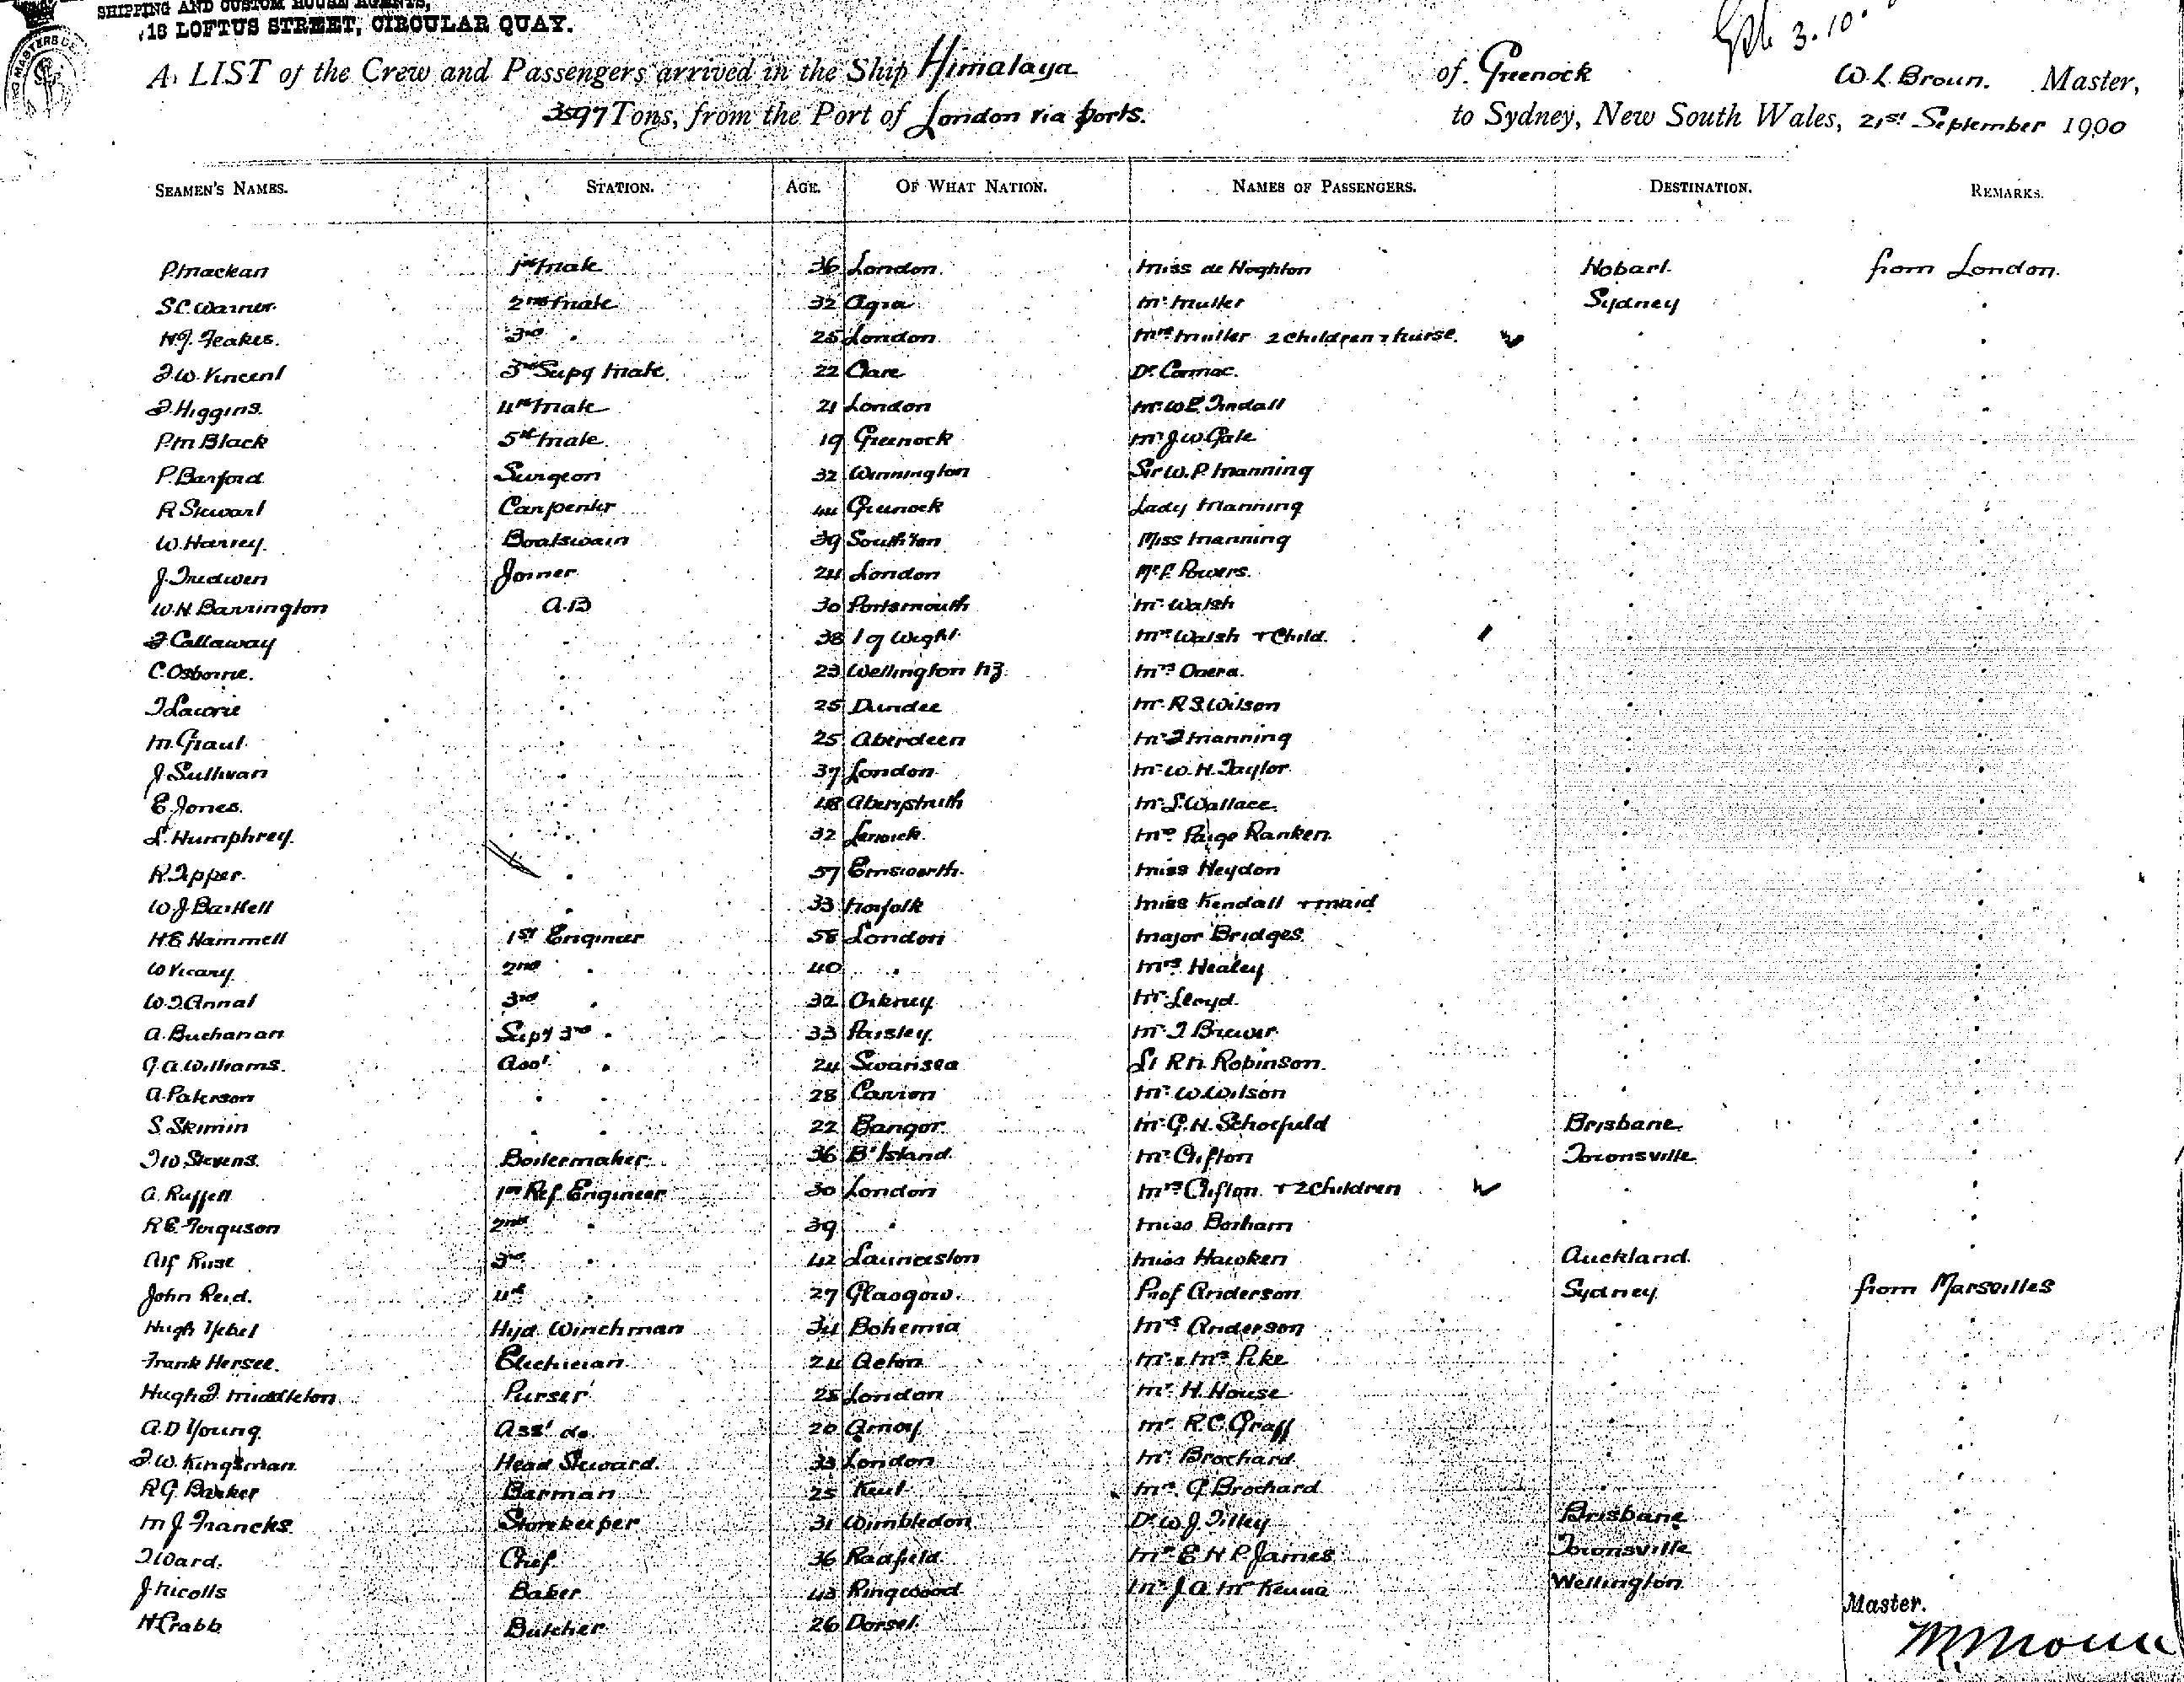 SHIPPING AND CUSTOM HOUSE AGENTS,
18 LOFTUS STREET, CIRCULAR QUAY.
3.10
A LIST of the Crew and Passengers arrived in the Ship Himalaya of Greenock W.L. Broun. Master,
3597 Tons, from the Port of London via ports. to Sydney, New South Wales, 21st September 1900
SEAMEN'S NAMES. STATION. AGE. OF WHAT NATION. NAMES OF PASSENGERS. DESTINATION. REMARKS.
P. Mackan 1st Mate 36 London. Miss de Hoghton Hobart. from London.
S.C. Warner. 2nd Mate 32 Agra Mr Muller Sydney
H.J. Feakes. 3rd 25 London Mrs Muller 2 Children + Nurse.
F.W. Vincent 3rd Supy Mate. 22 Clare Dr. Cormac.
F. Higgins. 4th Mate 21 London Mr W.E. Tindall
P.M Black 5th Mate. 19 Greenock Mr J.W. Gale
P. Barford Surgeon 32 Winnington Sir W.P. Manning
R Stewart Carpenter 44 Greenock Lady Manning
W. Harvey. Boatswain 39 Southton Miss Manning
J. Tredwen Joiner 24 London Mr F. Powers.
W.H. Barrington A.B 30 Portsmouth Mr Walsh
F Callaway 38 I of Wight Mrs Walsh + Child.
C. Osborne. 23 Wellington NZ. Mrs Onera.
T Lawrie 25 Dundee Mr R.S. Wilson
M. Grant 25 Aberdeen Mr F Manning
J Sullivan 37 London Mr W.H. Taylor.
E. Jones. 48 Aberystwith Mr S. Wallace.
L. Humphrey. 32 Lerwick. Mrs Paige Ranken.
R. Tipper. 57 Emsworth. Miss Heydon
W J Bartlell 33 Norfolk Miss Kendall + Maid
H.E Hammell 1st Engineer 58 London Major Bridges.
W Vicary 2nd 40 Mrs Healey
W.T. Annal 3rd 32 Orkney Mr Lloyd.
A. Buchanan Supy 3rd 33 Paisley. Mr T Brewer.
G.A. Williams. Asst. 24 Swansea Lt R.N. Robinson.
A. Paterson 28 Carron Mr W Wilson
S. Skimin 22 Bangor Mr G.H. Schofield Brisbane.
T W Stevens. Boilermaker. 36 B. Island Mr Clifton Townsville.
A. Ruffell 1st Ref. Engineer 30 London Mrs Clifton. + 2 Children
R.E. Ferguson 2nd 39 Miss Borham
Alf Ruse 3rd 42 Launceston Miss Hawken Auckland.
John Reid. 4th 27 Glasgow. Prof Anderson Sydney from Marseilles
Hugh Hyd. Winchman 34 Bohemia Mrs Anderson
Frank Hersee. Electrician 24 Acton Mr & Mrs Pike
Hugh F. Middleton. Purser 25 London Mr H. House
A.D Young. Asst do. 20 Amoy Mr R.C. Graff
F.W. Kingsman. Head Steward. 33 London Mr Brochard
R G. Barker Barman 25 Kent Mrs. G Brochard
M J. Francks Storekeeper 31 Wimbledon Dr W.J. Tilley Brisbane
T Ward. Chef 36 Radfield Mr E H P. James Townsville
J. Nicolls Baker 43 Ringwood Mr J A Mc Kenna Wellington
H Crabb Butcher 26 Dorset.
Master.